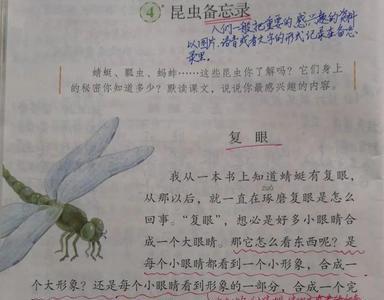 4* 昆虫备忘录
人们一般把重要的感兴趣的资料
以图片、语音或者文字的形式记录在备忘
录里。
蜻蜓、瓢虫、蚂蚱……这些昆虫你了解吗？它们身上
的秘密你知道多少？默读课文，说说你最感兴趣的内容。
复 眼
我从一本书上知道蜻蜓有复眼，
zuó
从那以后，就一直在琢磨复眼是怎么
回事。“复眼”，想必是好多小眼睛合
成一个大眼睛。那它怎么看东西呢？是
每个小眼睛都看到一个小形象，合成一
个大形象？还是每个小眼睛看到形象的一部分，合成一个完